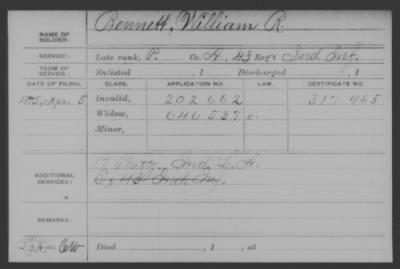 NAME OF SOLDIER: Bennett, William R.
SERVICE: Late rank, P. Co. A, 43 Reg't Ind. Inf.
TERM OF SERVICE: Enlisted , 1 Discharged , 1
DATE OF FILING. CLASS. APPLICATION NO. LAW. CERTIFICATE NO.
Apr. 5 Invalid, 202 662 317 965
Widow, 646 537
Minor,
ADDITIONAL SERVICES: 17 Batty. Ind. L. A.
43 Ind. Inf.
REMARKS:
Died , 1 , at